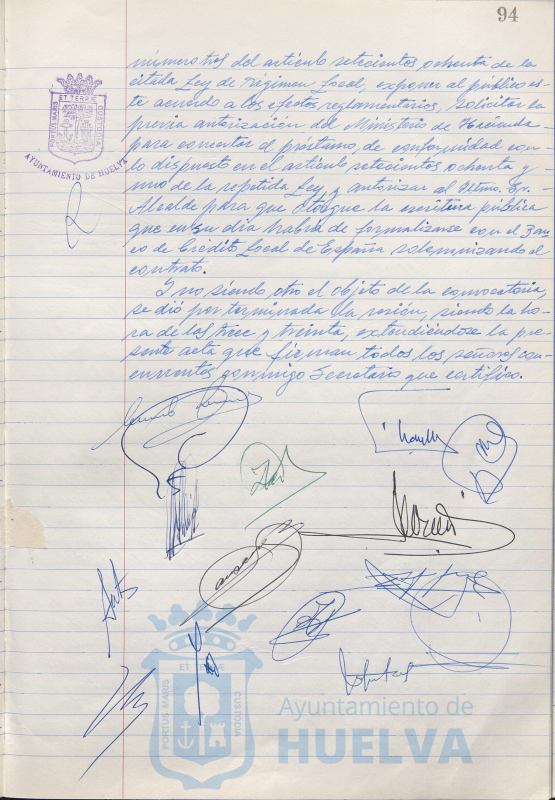 94
PORTUS MARIS ET TERRE CUSTODIA
AYUNTAMIENTO DE HUELVA
número tres del artículo setecientos ochenta de la
citada Ley de Régimen Local, exponer al público es-
te acuerdo a los efectos reglamentarios, solicitar la
previa autorización del Ministerio de Hacienda
para concertar el préstamo, de conformidad con
lo dispuesto en el artículo setecientos ochenta y
uno de la repetida Ley, y autorizar al Iltmo. Sr.
Alcalde para que otorgue la escritura pública
que en su día habrá de formalizarse con el Ban-
co de Crédito Local de España solemnizando el
contrato.
Y no siendo otro el objeto de la convocatoria,
se dió por terminada la sesión, siendo la ho-
ra de las trece y treinta, extendiéndose la pre-
sente acta que firman todos los señores con-
currentes conmigo Secretario que certifico.
PORTUS MARIS ET TERRE CUSTODIA
Ayuntamiento de
HUELVA